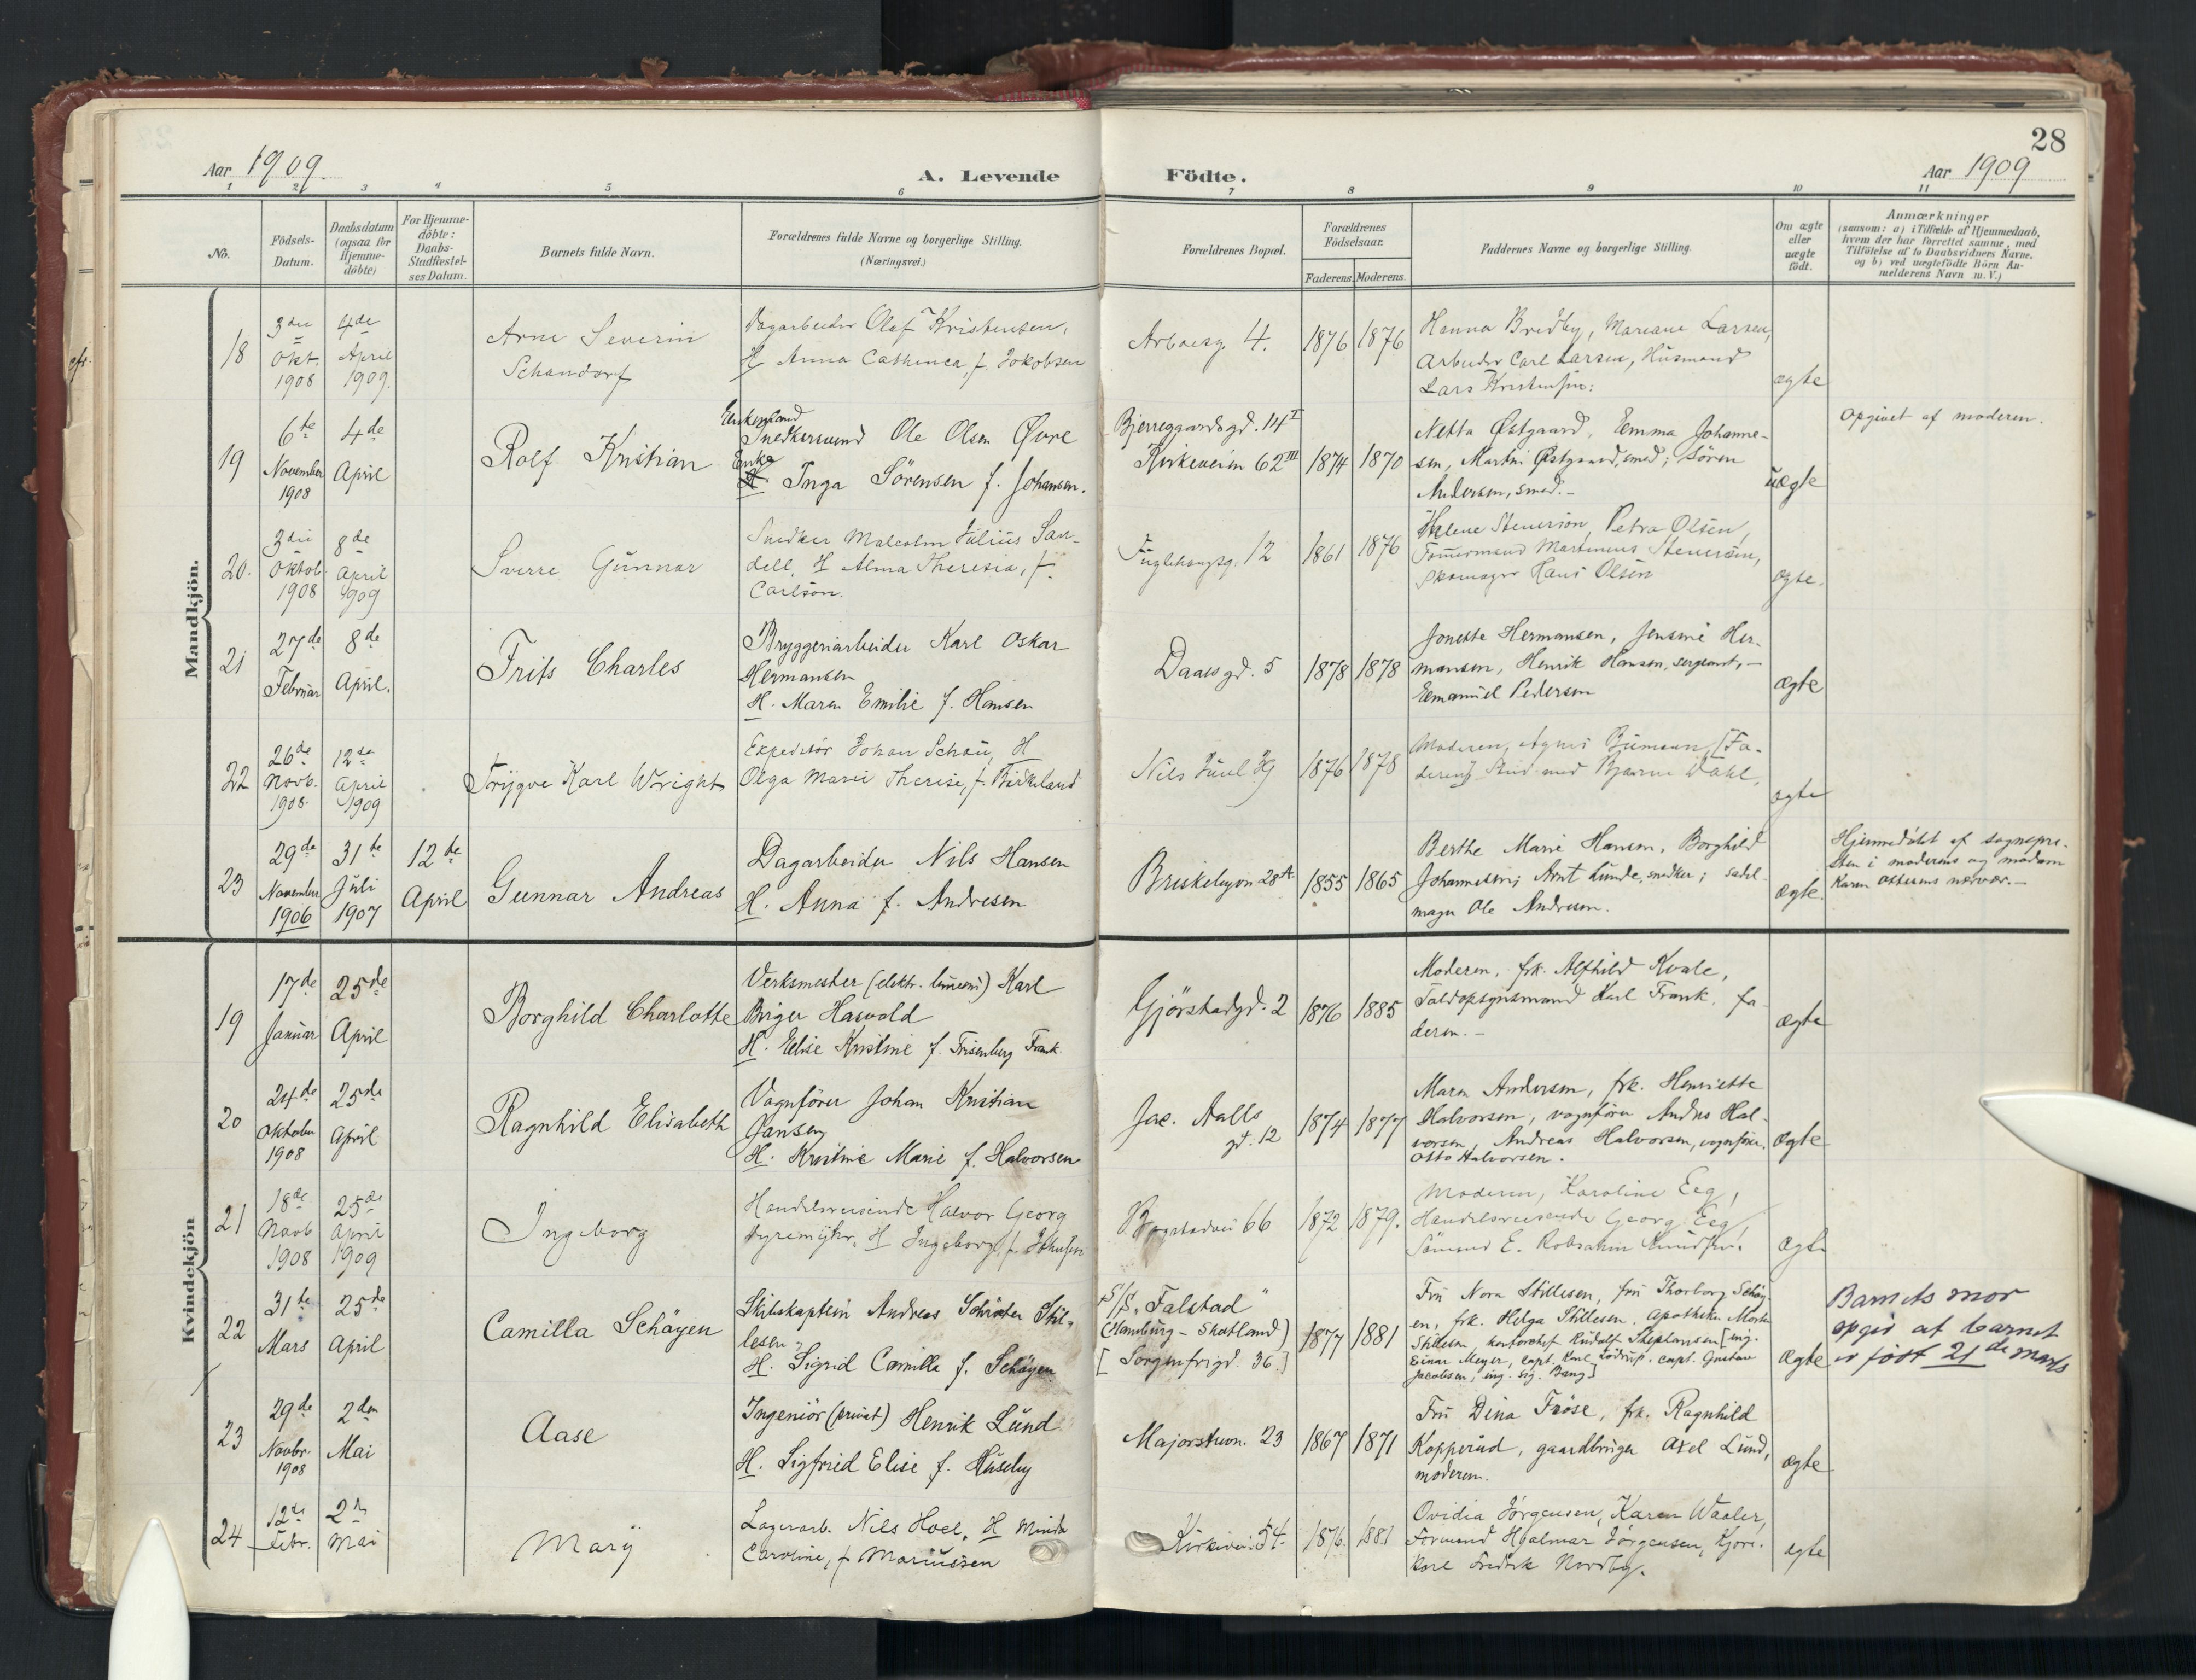 28
Aar 1909.
A. Levende
Födte.
Aar 1909
1 2 3 4 5 6 7 8 9 10 11
No.
Födsels-
Datum.
Daabsdatum
(ogsaa for
Hjemme-
döbte)
For Hjemme-
döbte:
Daabs-
Stadfæstel-
ses Datum.
Barnets fulde Navn.
Forældrenes fulde Navne og borgerlige Stilling.
(Næringsvei.)
Forældrenes Bopæl.
Forældrenes
Födselsaar.
Faderens. Moderens.
Faddernes Navne og borgerlige Stilling.
Om ægte
eller
uægte
födt.
Anmærkninger
(saasom: a) i Tilfælde af Hjemmedaab,
hvem der har forrettet samme, med
Tilföielse af to Daabsvidners Navne,
og b) ved uægtefödte Börn An-
melderens Navn m. V.)
Mandkjön.
18
3die
Okt.
1908
4de
April
1909.
Arne Severin
Schandorf
Dagarbeider Olaf Kristensen,
H Anna Cathinca f. Jakobsen
4.
1876
1876
Hanna Bredby, Mariane Larsen,
Arbeider Carl Larsen, Husmand
Lars Kristensen.
ægte
19
6te
November
1908
4de
April
Rolf Kristian
Enkemand
Snedkersvend Ole Olsen Øvre
Enke
H. Inga Sörensen f. Johansen.
Bjerregaardsgd. 14 I
Kirkeveien 62 III
1874
1870
Netta Østgaard, Emma Johanne-
sen, Martin Østgaard, smed; Sören
Andersen, smed.-
uægte
Opgivet af moderen.
20.
3die
Oktob
1908
8de
April
1909
Sverre Gunnar
Snedker Malcolm Julius San-
dell, H Alma Theresia, f.
Carlson.
Fuglehaugsg. 12
1861
1876
Helene Stenersön, Petra Olsen,
Tömmermand Martinius Stenersön,
Skomager Hans Olsen
ægte.
21
27de
Februar
8de
April.
Frits Charles
Bryggeriarbeider Karl Oskar
Hermansen
H. Maren Emilie f. Hansen
Daasgd. 5
1878
1878
Jonette Hermansen, Jensine Her-
mansen, Henrik Hansen, sergeant, -
Emanuel Pedersen
ægte
22
26de
Novb.
1908.
12te
April
1909
Trygve Karl Wright
Expeditör Johan Schau, H
Olga Marie Therese, f. Birkeland
Nils Juel 39
1876
1878
Moderen, Agnes [Fa-
deren] Stud. med Bjarne Dahl,
ægte
23
29de
November
1906
31te
Juli
1907
12te
April
Gunnar Andreas
Dagarbeider Nils Hansen
H. Anna f. Andresen
Briskebyvn 28A
1855
1865
Berthe Marie Hansen, Borghild
Johannesen; Arnt Lunde, snedker; sadel-
mager Ole Andresen.
ægte.
Hjemmedöbt af sognepre-
sten i moderens og madam
Karen Ottesens nærvær.-
Kvindekjön
19
17de
Januar
25de
April
Borghild Charlotte
Verksmester (elektr. linieri) Karl
Birger Hasvold
H. Elise Kristine f. Frisenberg Frank.
Gjörstadgd. 2
1876
1885
Moderen, frk. Alfhild Kvale,
Toldopsynsmand Karl Frank, fa-
deren.-
ægte
20
24de
Oktober
1908
25de
April
Ragnhild Elisabeth
Vognförer Johan Kristian
Jansen
H. Kristine Marie f. Halvorsen
Jac. Aalls
gd. 12
1874
1877
Maren Andersen, frk. Henriette
Halvorsen, vognförer Anders Hal-
vorsen, Andreas Halvorsen, vognförer.
Otto Halvorsen.
ægte
21
18de
Novb
1908
25de
April
1909
Ingeborg
Handelsreisende Halvor Georg
Dyremyhr, H Ingeborg f. Johnsen
Bogstadvei 66
1872
1879.
Moderen, Karoline Eeg,
Handelsreisende Georg Eeg,
Sömand E. Robsahm Knudsen.
ægte
22
31te
Mars
25de
April
Camilla Schöyen
Skibskaptein Andreas Schröter Stil-
lesen
H. Sigrid Camilla f. Schöyen
S/S. "Falstad"
(Hamburg - Skotland)
[Sorgenfrigd. 36.]
1877
1881
Fru Nora Stillesen, fru Thorborg Schöy-
en, frk. Helga Stillesen. Apotheker Morten
Stillesen kontorchef Rudolf Stephansen [ing.
Einar Meyer, capt. Karl Rödrup, capt. Gustav
Jacobsen, ing. Sig. Bang]
ægte
Barnets mor
opgir at barnet
er född 21de Mars
23
29de
Novbr.
1908
2den
Mai
Aase
Ingeniör (privat) Henrik Lund
H. Sigfried Elise f. Huseby
Majorstuvn. 23
1867
1871
Fru Dina Fröse, frk. Ragnhild
Kopperud, gaardbruger Axel Lund,
moderen.
ægte
24
12te
Febr.
2n
Mai
Mary
Lagerarb. Nils Hoel, H Minda
Caroline, f. Mariussen
Kirkevei. 54.
1876.
1881
Ovidia Jörgensen, Karen Waaler,
Formand Hjalmar Jörgensen, Kjöre-
karl Fredrik Nordby.
egte